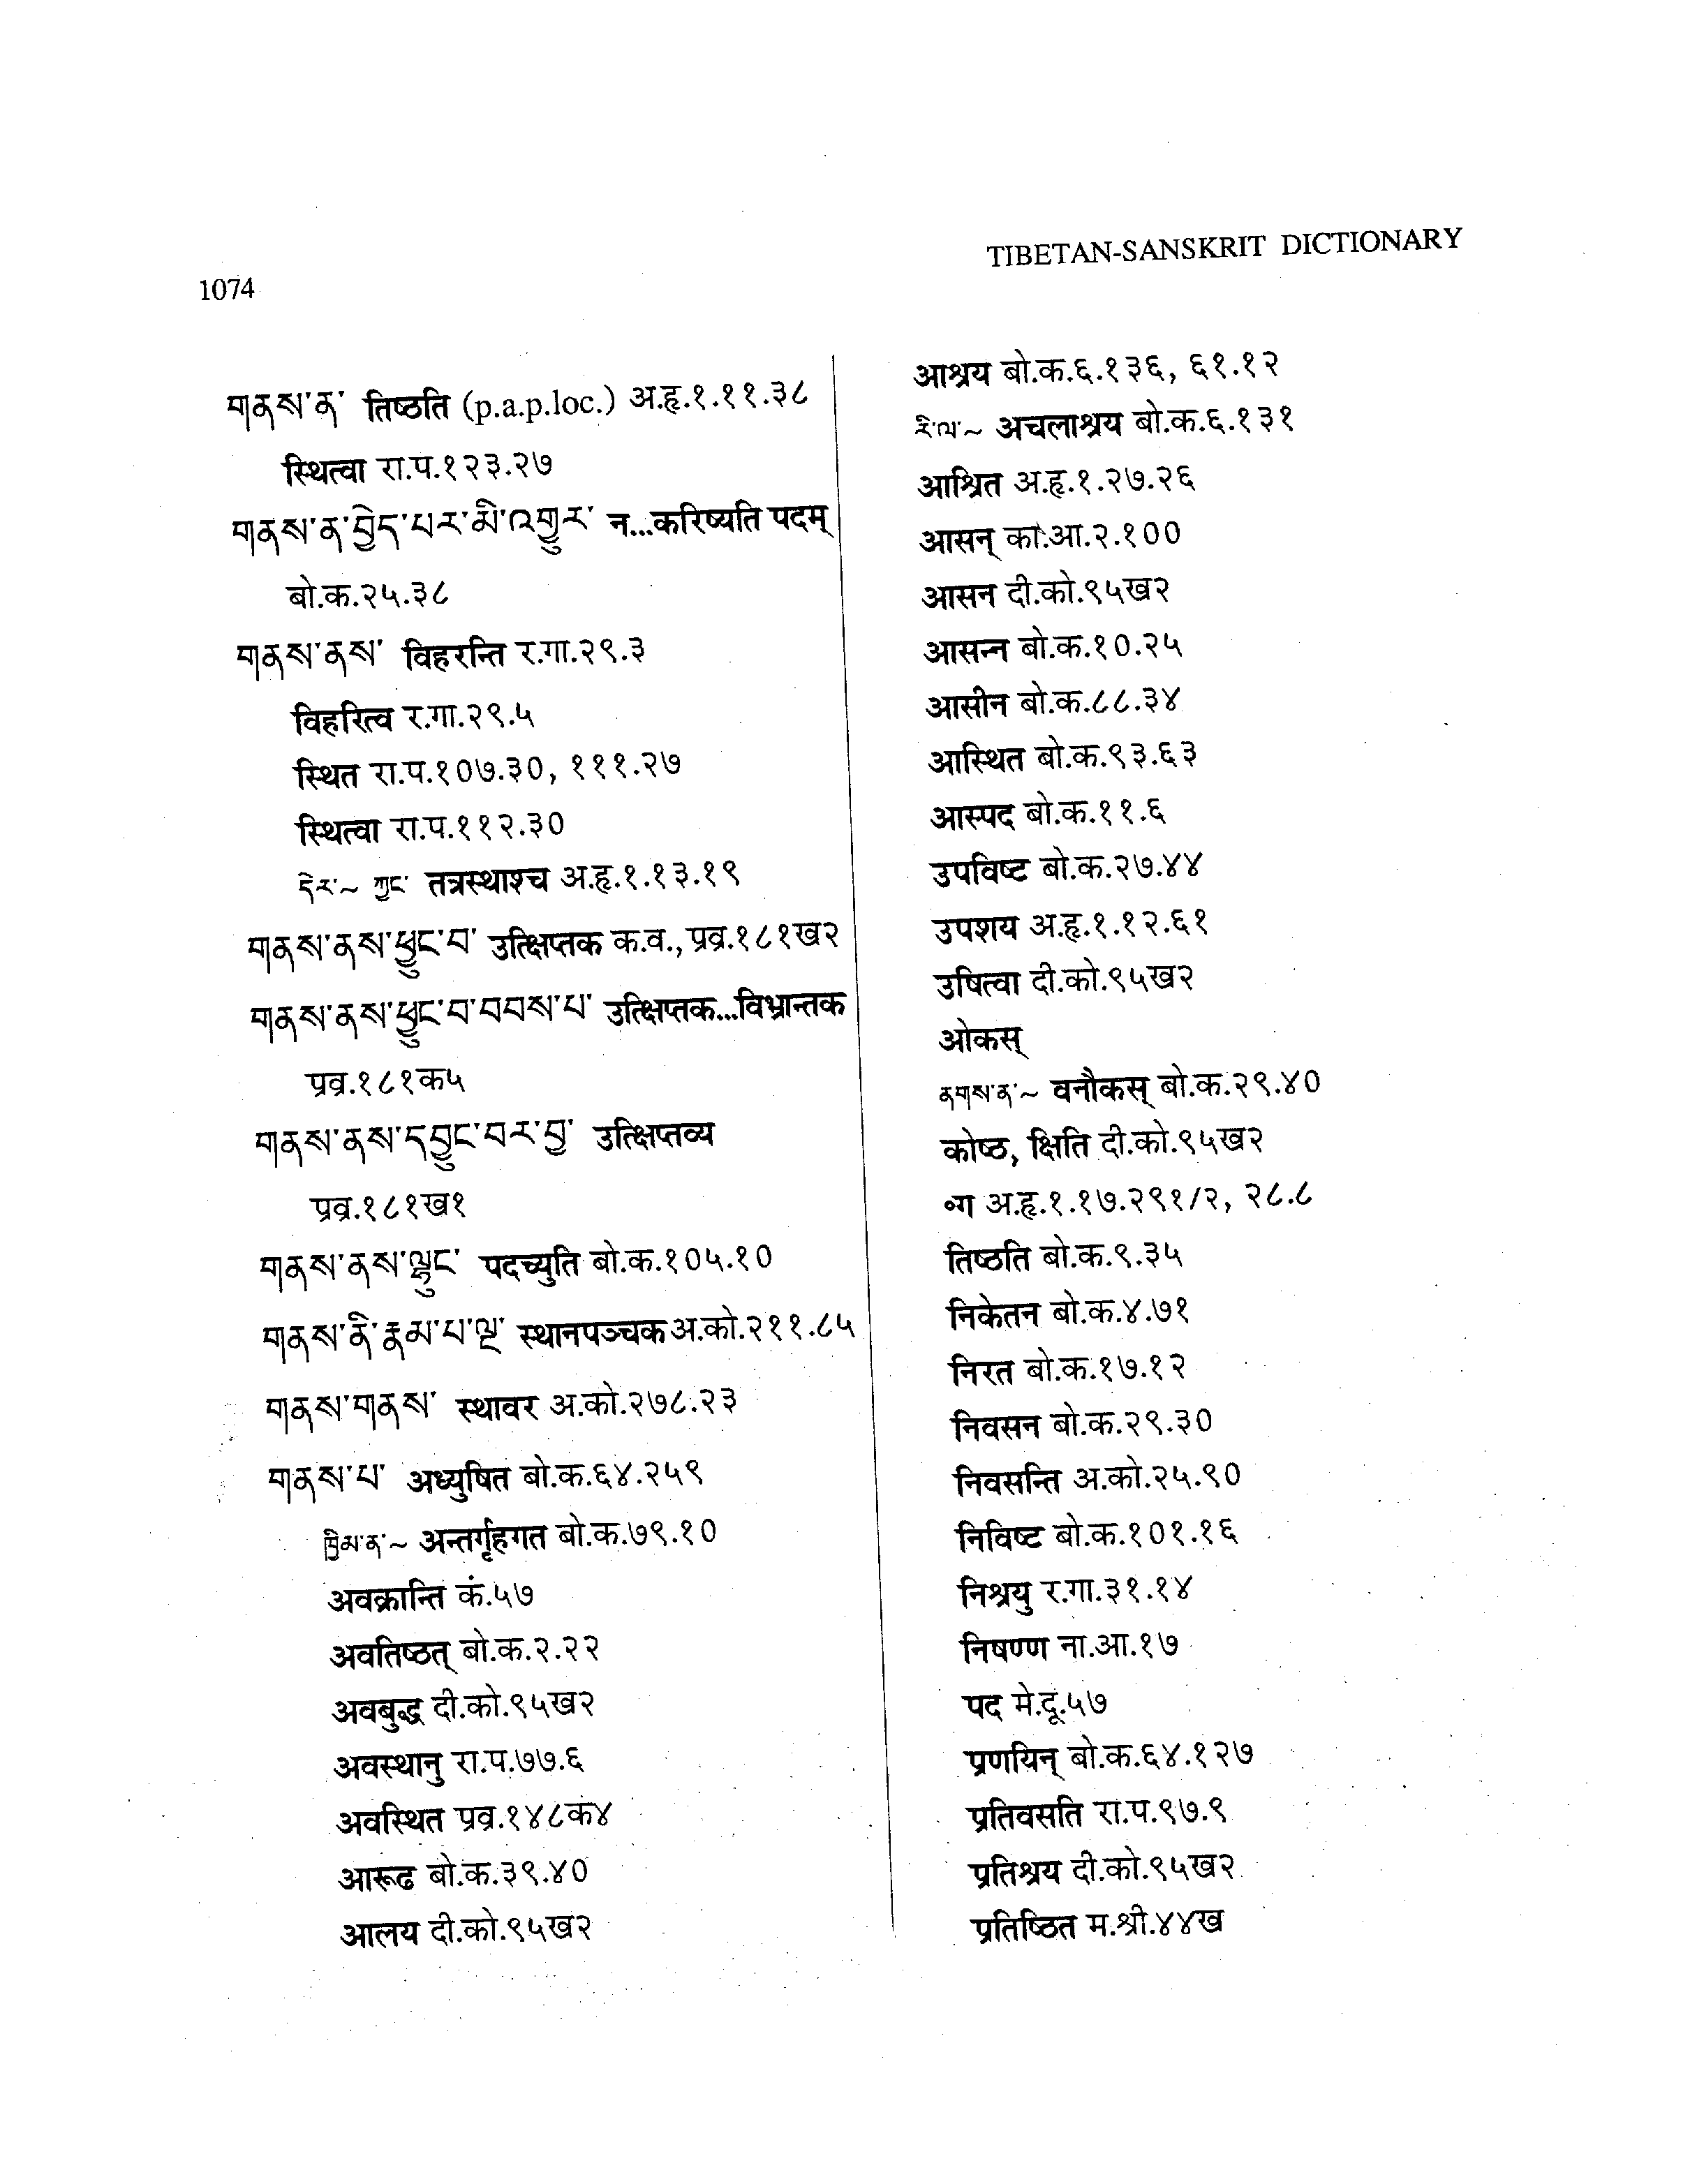 TIBETAN-SANSKRIT DICTIONARY
1074
གནས་ན་ तिष्ठति (p.a.p.loc.) अ.हृ.१.११.३८
स्थित्वा रा.प.१२३.२७
གནས་ན་བྱེད་པར་མི་འགྱུར་ न...करिष्यति पदम्
बो.क.२५.३८
གནས་ནས་ विहरन्ति र.गा.२९.३
विहरित्व र.गा.२९.५
स्थित रा.प.१०७.३०, १११.२७
स्थित्वा रा.प.११२.३०
དེར་~ ཀྱང་ तत्रस्थाश्च अ.हृ.१.१३.१९
གནས་ནས་ཕྱུང་བ་ उत्क्षिप्तक क.व., प्रव्र.१८१ख२
གནས་ནས་ཕྱུང་བ་བབས་པ་ उत्क्षिप्तक...विभ्रान्तक
प्रव्र.१८१क५
གནས་ནས་དབྱུང་བར་བྱ་ उत्क्षिप्तव्य
प्रव्र.१८१ख१
གནས་ནས་ལྷུང་ पदच्युति बो.क.१०५.१०
གནས་ནི་རྣམ་པ་ལྔ་ स्थानपञ्चक अ.को.२११.८५
གནས་གནས་ स्थावर अ.को.२७८.२३
གནས་པ་ अध्युषित बो.क.६४.२५९
ཁྱིམ་ན་~ अन्तर्गृहगत बो.क.७९.१०
अवक्रान्ति कं.५७
अवतिष्ठत् बो.क.२.२२
अवबुद्ध दी.को.९५ख२
अवस्थानु रा.प.७७.६
अवस्थित प्रव्र.१४८क४
आरूढ बो.क.३९.४०
आलय दी.को.९५ख२
आश्रय बो.क.६.१३६, ६१.१२
རི་ལ་~ अचलाश्रय बो.क.६.१३१
आश्रित अ.हृ.१.२७.२६
आसन् का.आ.२.१००
आसन दी.को.९५ख२
आसन्न बो.क.१०.२५
आसीन बो.क.८८.३४
आस्थित बो.क.९३.६३
आस्पद बो.क.११.६
उपविष्ट बो.क.२७.४४
उपशय अ.हृ.१.१२.६१
उषित्वा दी.को.९५ख२
ओकस्
ནགས་ན་~ वनौकस् बो.क.२९.४०
कोष्ठ, क्षिति दी.को.९५ख२
॰ग अ.हृ.१.१७.२९१/२, २८.८
तिष्ठति बो.क.९.३५
निकेतन बो.क.४.७१
निरत बो.क.१७.१२
निवसन बो.क.२९.३०
निवसन्ति अ.को.२५.९०
निविष्ट बो.क.१०१.१६
निश्रयु र.गा.३१.१४
निषण्ण ना.आ.१७
पद मे.दू.५७
प्रणयिन् बो.क.६४.१२७
प्रतिवसति रा.प.९७.९
प्रतिश्रय दी.को.९५ख२
प्रतिष्ठित म.श्री.४४ख